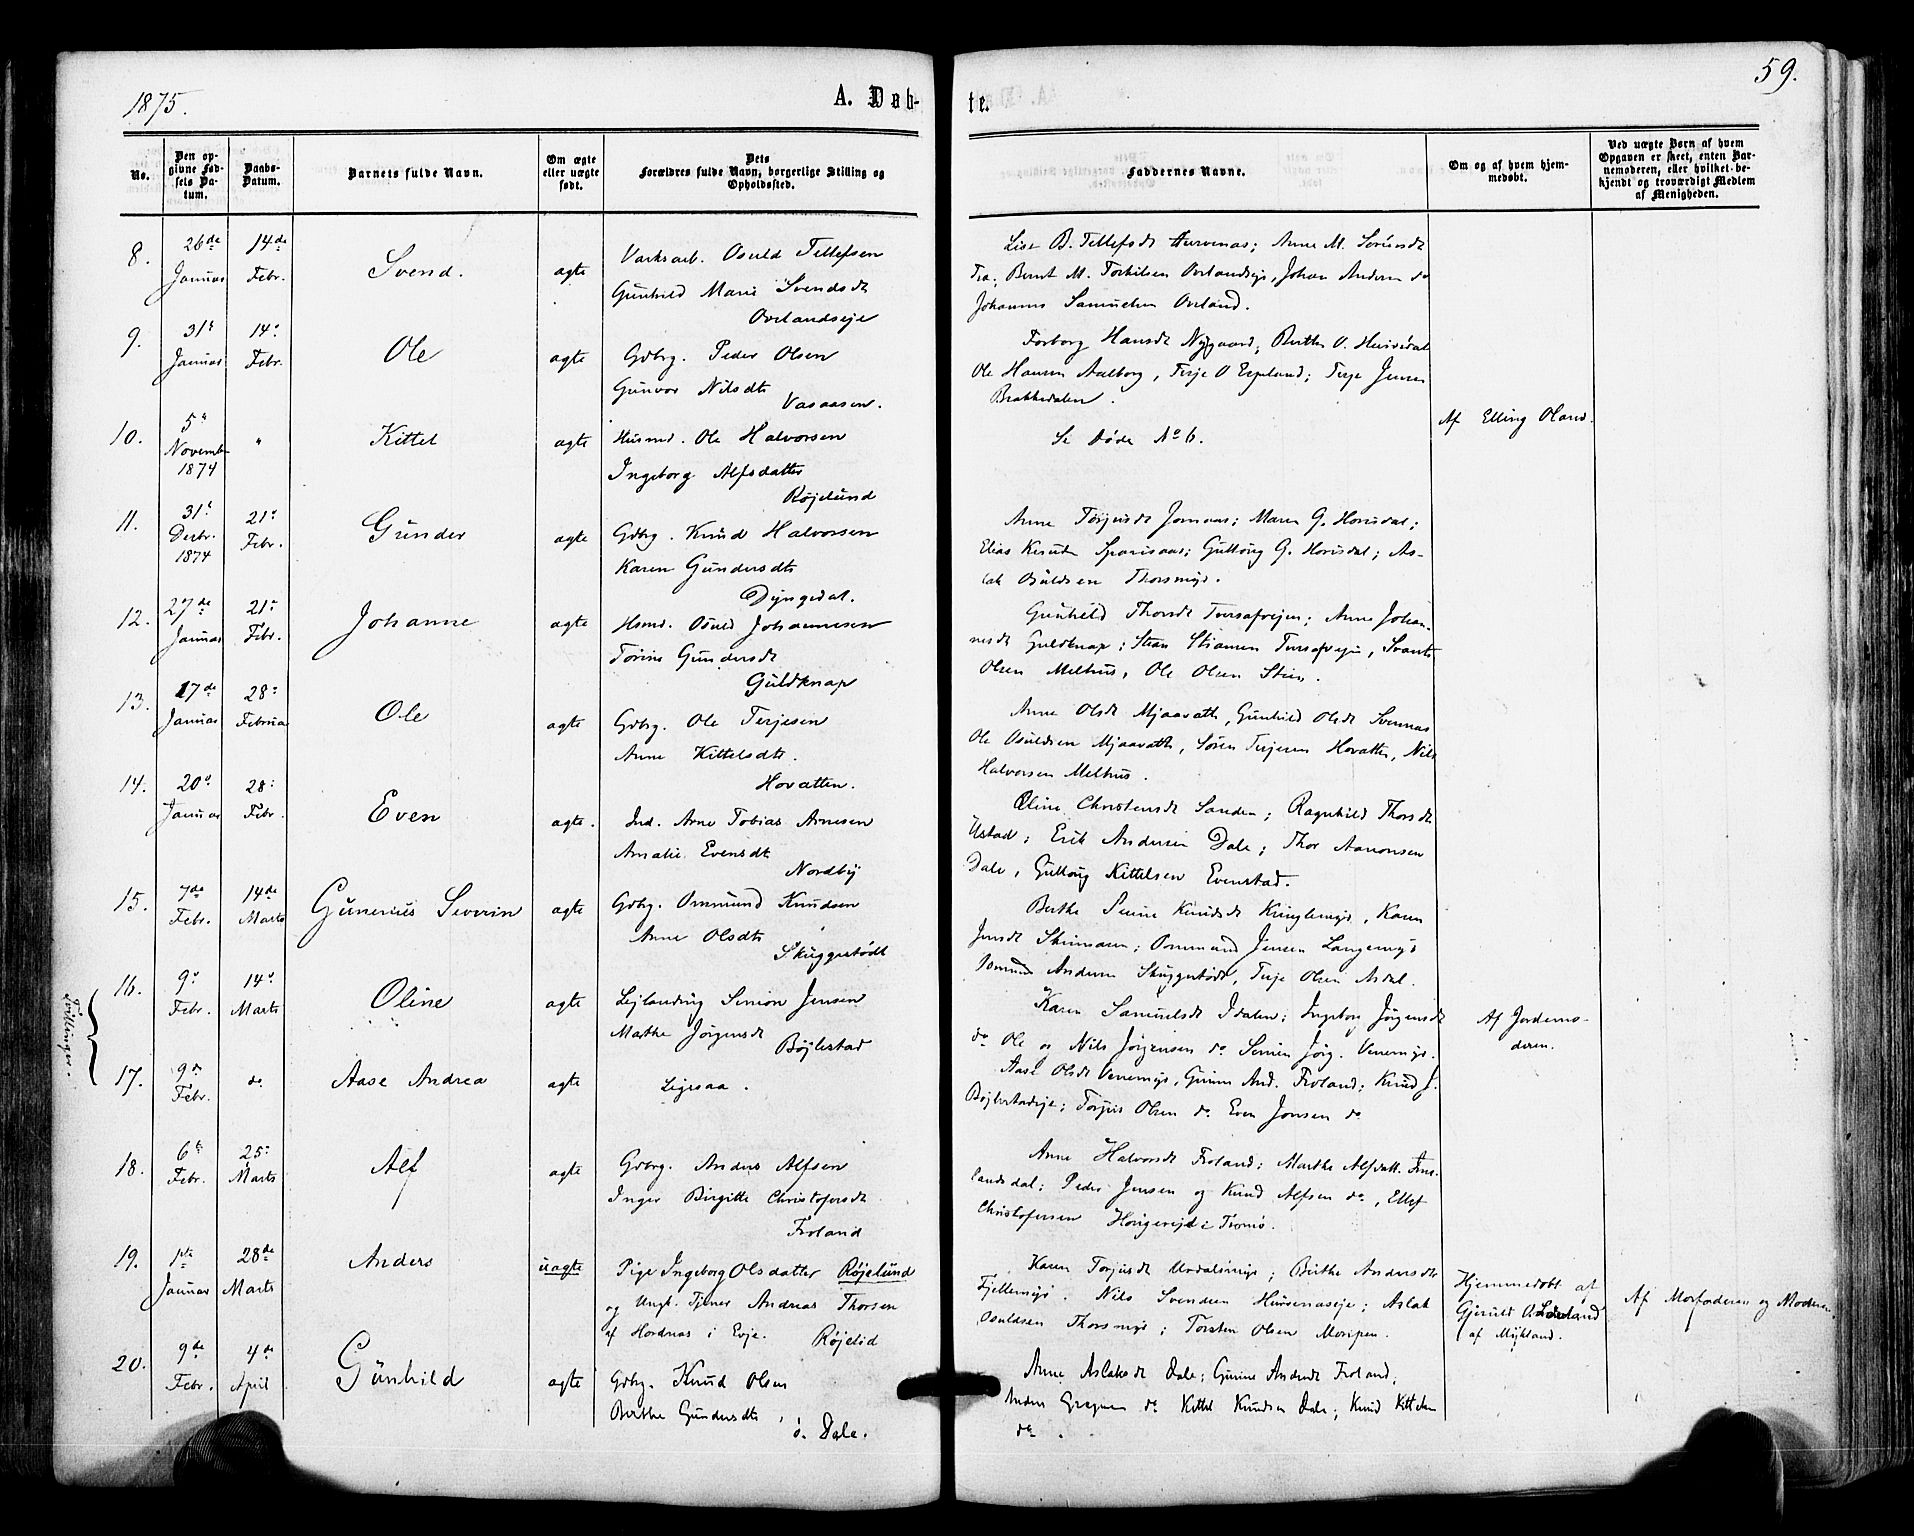 1875.
A. Døb-
te.
59.
No.
Den op-
givne Fød-
sels Da-
tum.
Daabs-
Datum.
Barnets fulde Navn.
Om ægte
eller uægte
født.
Dets
Forældres fulde Navn, borgerlige Stilling og
Opholdssted.
Faddernes Navne.
Om og af hvem hjem-
medøbt.
Ved uægte Børn af hvem
Opgaven er skeet, enten Bar-
nemoderen, eller hvilket be-
kjendt og troværdigt Medlem
af Menigheden.
8.
26de
Januar
14de
Febr.
Svend.
ægte
Osuld Tellefsen
Gunhild Marie Svendsdt
Ovelandseje
Lise B. Tellefsdt ; Anne M.
Bernt M. Torkilsen Ovelandseje, Johan Andersen do
Johannes Samuelsen Oveland.
9.
31t
Januar
14.
Febr.
Ole
ægte
Gdbrg. Peder Olsen
Gunvor Nilsdtr
Vasaasen.
Torborg Hansdt Nygaard; Berthe O.
Ole Hansen Aalborg, Terje O Espeland; Terje Jensen
10.
5t
Novembr
1874
"
Kittel
ægte
Husmd. Ole Halvorsen
Ingeborg Alfsdatter
Røjelund
Se Døde No 6.
Af Elling Oland.
11.
31t
Decbr.
1874
21.
Febr.
Gunder
ægte
Gdbrg. Knud Halvorsen
Karen Gundersdtr
Dyngedal.
Anne Torjusdt ; Maren G. Horisdal;
Elias Knuds ; Guttorm G. Horisdal; As-
lak Osuldsen Thorsmyr.
12.
27de
Januar
21.
Febr.
Johanne
ægte
Hsmd. Osuld Johannesen
Torine Gundersdt
Guldknap
Gunhild Thorsdt ; Anne Johan-
nesdt Guldknap;
Olsen Melhus, Ole Olsen Stien.
13.
17de
Januar
28.
Februar
Ole
ægte
Gdbrg. Ole Terjesen
Anne Kittelsdtr.
Hovatten.
Anne Olsdt Mjaavatn, Gunhild Olsdt Svennas
Ole Osuldsen Mjaavatn, Søren Terjesen Hovatten, Nils
Halvorsen Melhus.
14.
20de
Januar
28.
Febr.
Even
ægte.
Ind. Arne Tobias Arnesen
Amalie Evensdt
Nordby
Oline Christensdt Sanden; Ragnhild Thorsdt
Ustad; Erik Andersen Dale; Thor Aanonsen
Dale, Guttorm Kittelsen Evenstad.
15.
7de
Febr.
14de
Marts
Gunerius Severin
ægte
Gdbrg. Ommund Knudsen
Anne Olsdt
Skuggestødt
Berthe Serine Knudsdt Kringlemyr, Karen
Jensdt ; Ommund Jensen Langemyr
Ommund Andersen Skuggestødt, Terje Olsen Asdal.
Tvillinger.
16.
9.
Febr.
14.
Marts
Oline
ægte
Lejlænding Simon Jensen
Marthe Jørgensdt
Bøjlestad
Karen Samuelsdt Idalen; Ingeborg Jørgensdt
do Ole og Nils Jørgensen do Jørg. Venemyr.
Af Jordemo-
deren.
17.
9de
Febr.
do
Aase Andrea
ægte
Ligesaa.
Aase Olsdt Venemyr, And. Froland; Knud J.
Bøjlestadeje; Torjus Olsen do Even Jonsen do
18.
6te
Febr.
25.
Marts
Alf
ægte
Gdbrg. Anders Alfsen
Inger Birgitte Christofersdt
Froland
Anne Halvorsdt Froland; Marthe Alfsdatt. Fro-
landsdal; Peder Jensen og Knud Alfsen do, Ellef
Christofersen i Tromø.
19.
1ste
Januar
28de
Marts
Anders
uægte
Pige Ingeborg Olsdatter Røjelund
og Ungk. Tjener Andreas Thorsen
af Hordnæs i Evje. Røjelid
Karen Torjusdt ; Berthe Andersdt
Fjellemyr. Nils Svendsen ; Aslak
Osuldsen Thorsmyr; Torsten Olsen Moripen.
Hjemmedøbt af
Gjeruld
af Mykland.
Af Morfaderen og Moderen
20.
9de
Febr.
4de
April
Gunhild
ægte
Gdbrg. Knud Olsen
Berthe Gundersdtr,
ø. Dale.
Anne Aslaksdt Dale; Gurine Andersdt Froland,
Anders do Kittel Knudsen Dale; Knud Kittelsen
do.